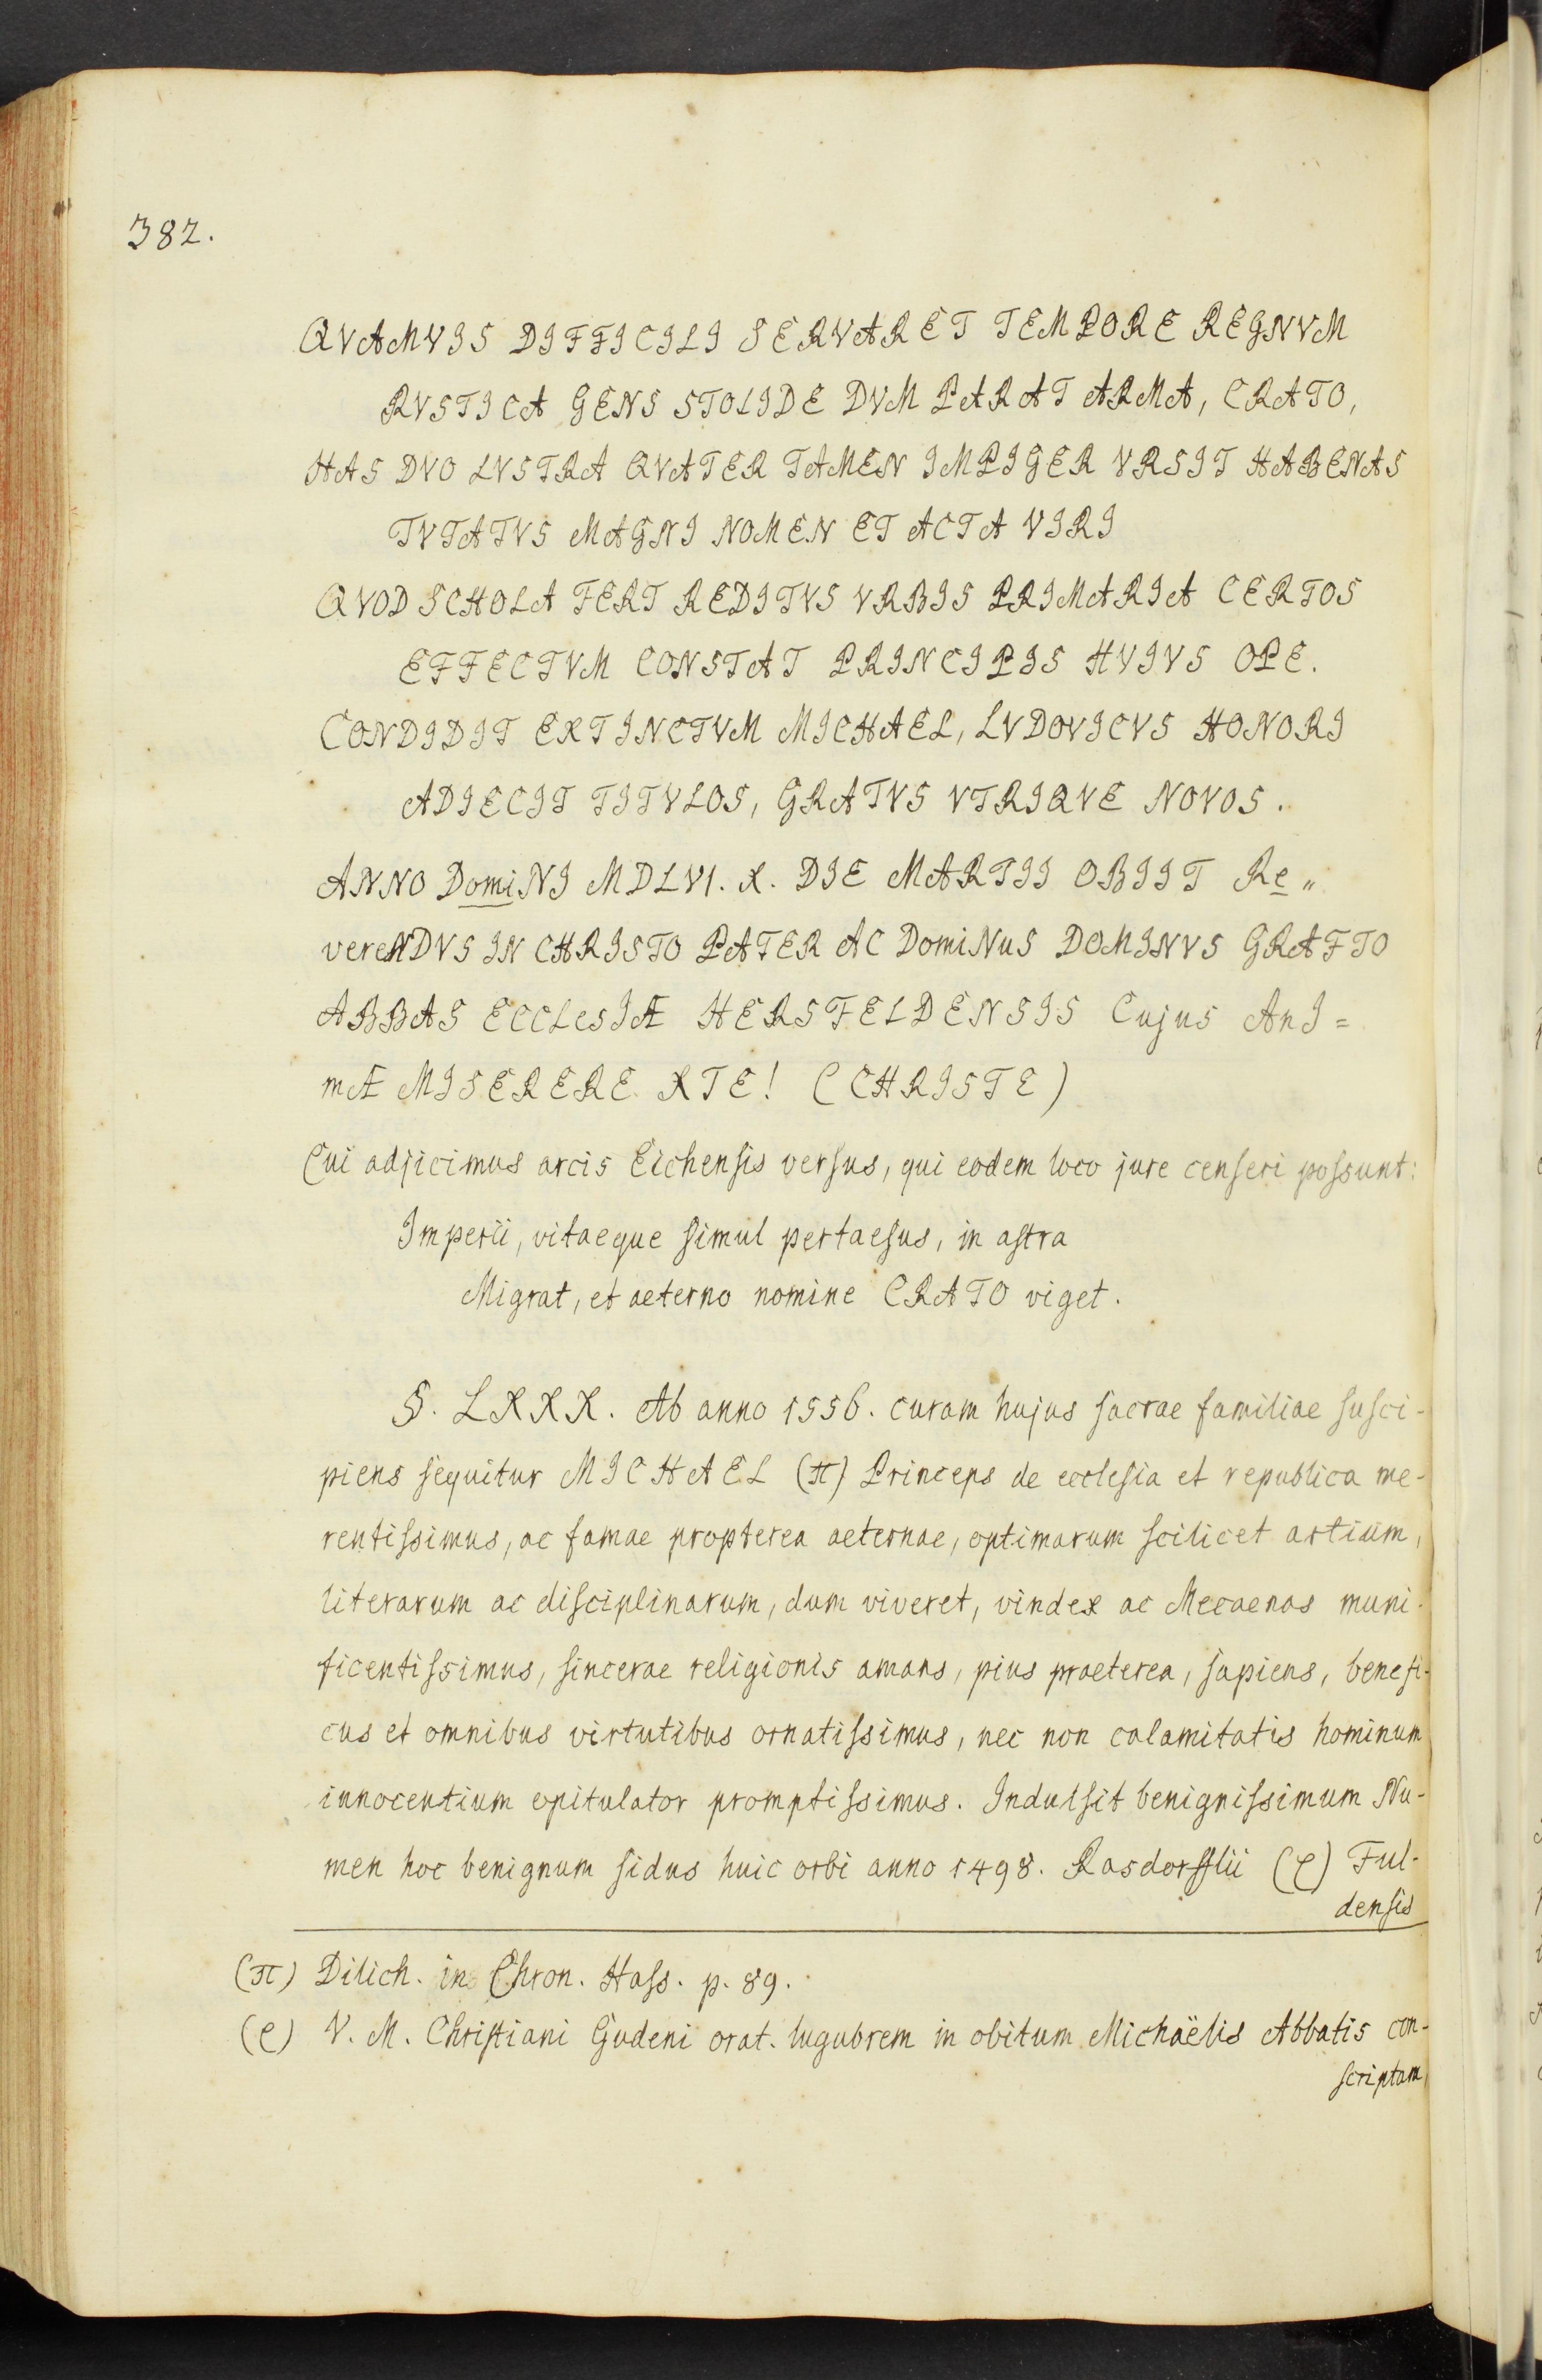 382.
QVAMVIS DIFFICILI SERVARET TEMPORE REGNVM
RVSTICA GENS STOLIDE DVM PARAT ARMA, CRATO,
HAS DVO LVSTRA QVATER TAMEN IMPIGER VRSIT HABENAS
TVTATVS MAGNI NOMEN ET ACTA VIRI
QVOD SCHOLA FERT REDITVS VRBIS PRIMARIA CERTOS
EFFECTVM CONSTAT PRINCIPIS HVIVS OPE.
CONDIDIT EXTINCTVM MICHAEL, LVDOVICVS HONORI
ADIECIT TITVLOS, GRATVS VTRIQVE NOVOS.
ANNO DomiNI MDLVI. X. DIE MARTII OBIIT Re„
vereNDVS IN CHRISTO PATER AC DomiNus DOMINVS GRAFTO
ABBAS ECCLesIÆ HERSFELDENSIS Cujus AnI=
mÆ MISERERE XTE! (CHRISTE)
Cui adjicimus arcis Eichensis versus, qui eodem loco jure censeri possunt:
Imperii, vitaeque simul pertaesus, in astra
Migrat, et aeterno nomine CRATO viget.
§. LXXX. Ab anno 1556. curam hujus sacrae familiae susci-
piens sequitur MICHAEL (π) Princeps de ecclesia et republica me-
rentissimus, ac famae propterea aeternae, optimarum scilicet artium,
literarum ac disciplinarum, dum viveret, vindex ac Mecaenas muni-
ficentissimus, sincerae religionis amans, pius praeterea, sapiens, benefi-
cus et omnibus virtutibus ornatissimus, nec non calamitatis hominum
innocentium opitulator promptissimus. Indulsit benignissimum Nu-
men hoc benignum sidus huic orbi anno 1498. Rasdorfflii (ρ) Ful-
densis
(π) Dilich. in Chron. Hass. p. 89.
(ρ) V. M. Christiani Gudeni orat. lugubrem in obitum Michaëlis Abbatis con-
scriptam,